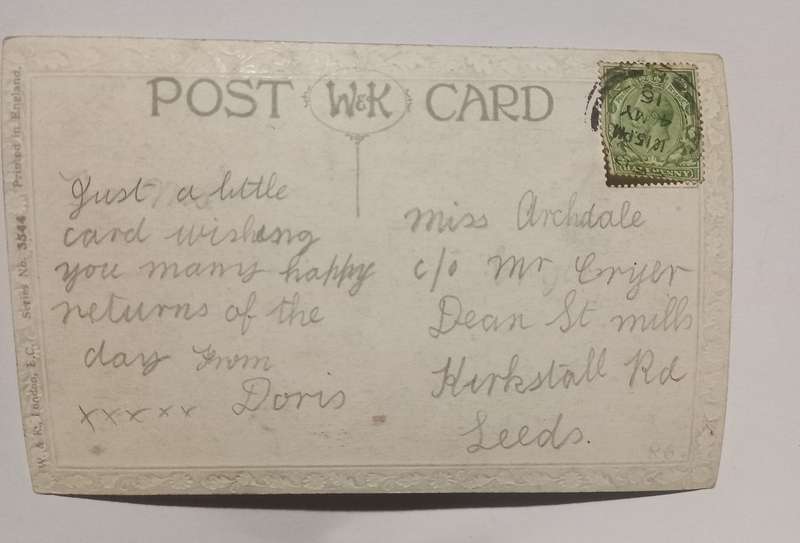 POST W&K CARD
Just a little
card wishing
you many happy
returns of the
day from
Doris
xxxxx
Miss Archdale
c/o Mr Cryer
Dean St mills
Kirkstall Rd
Leeds.
W. & K., London, E.C. Series No. 3544 Printed in England.
12.15 PM
MY
16